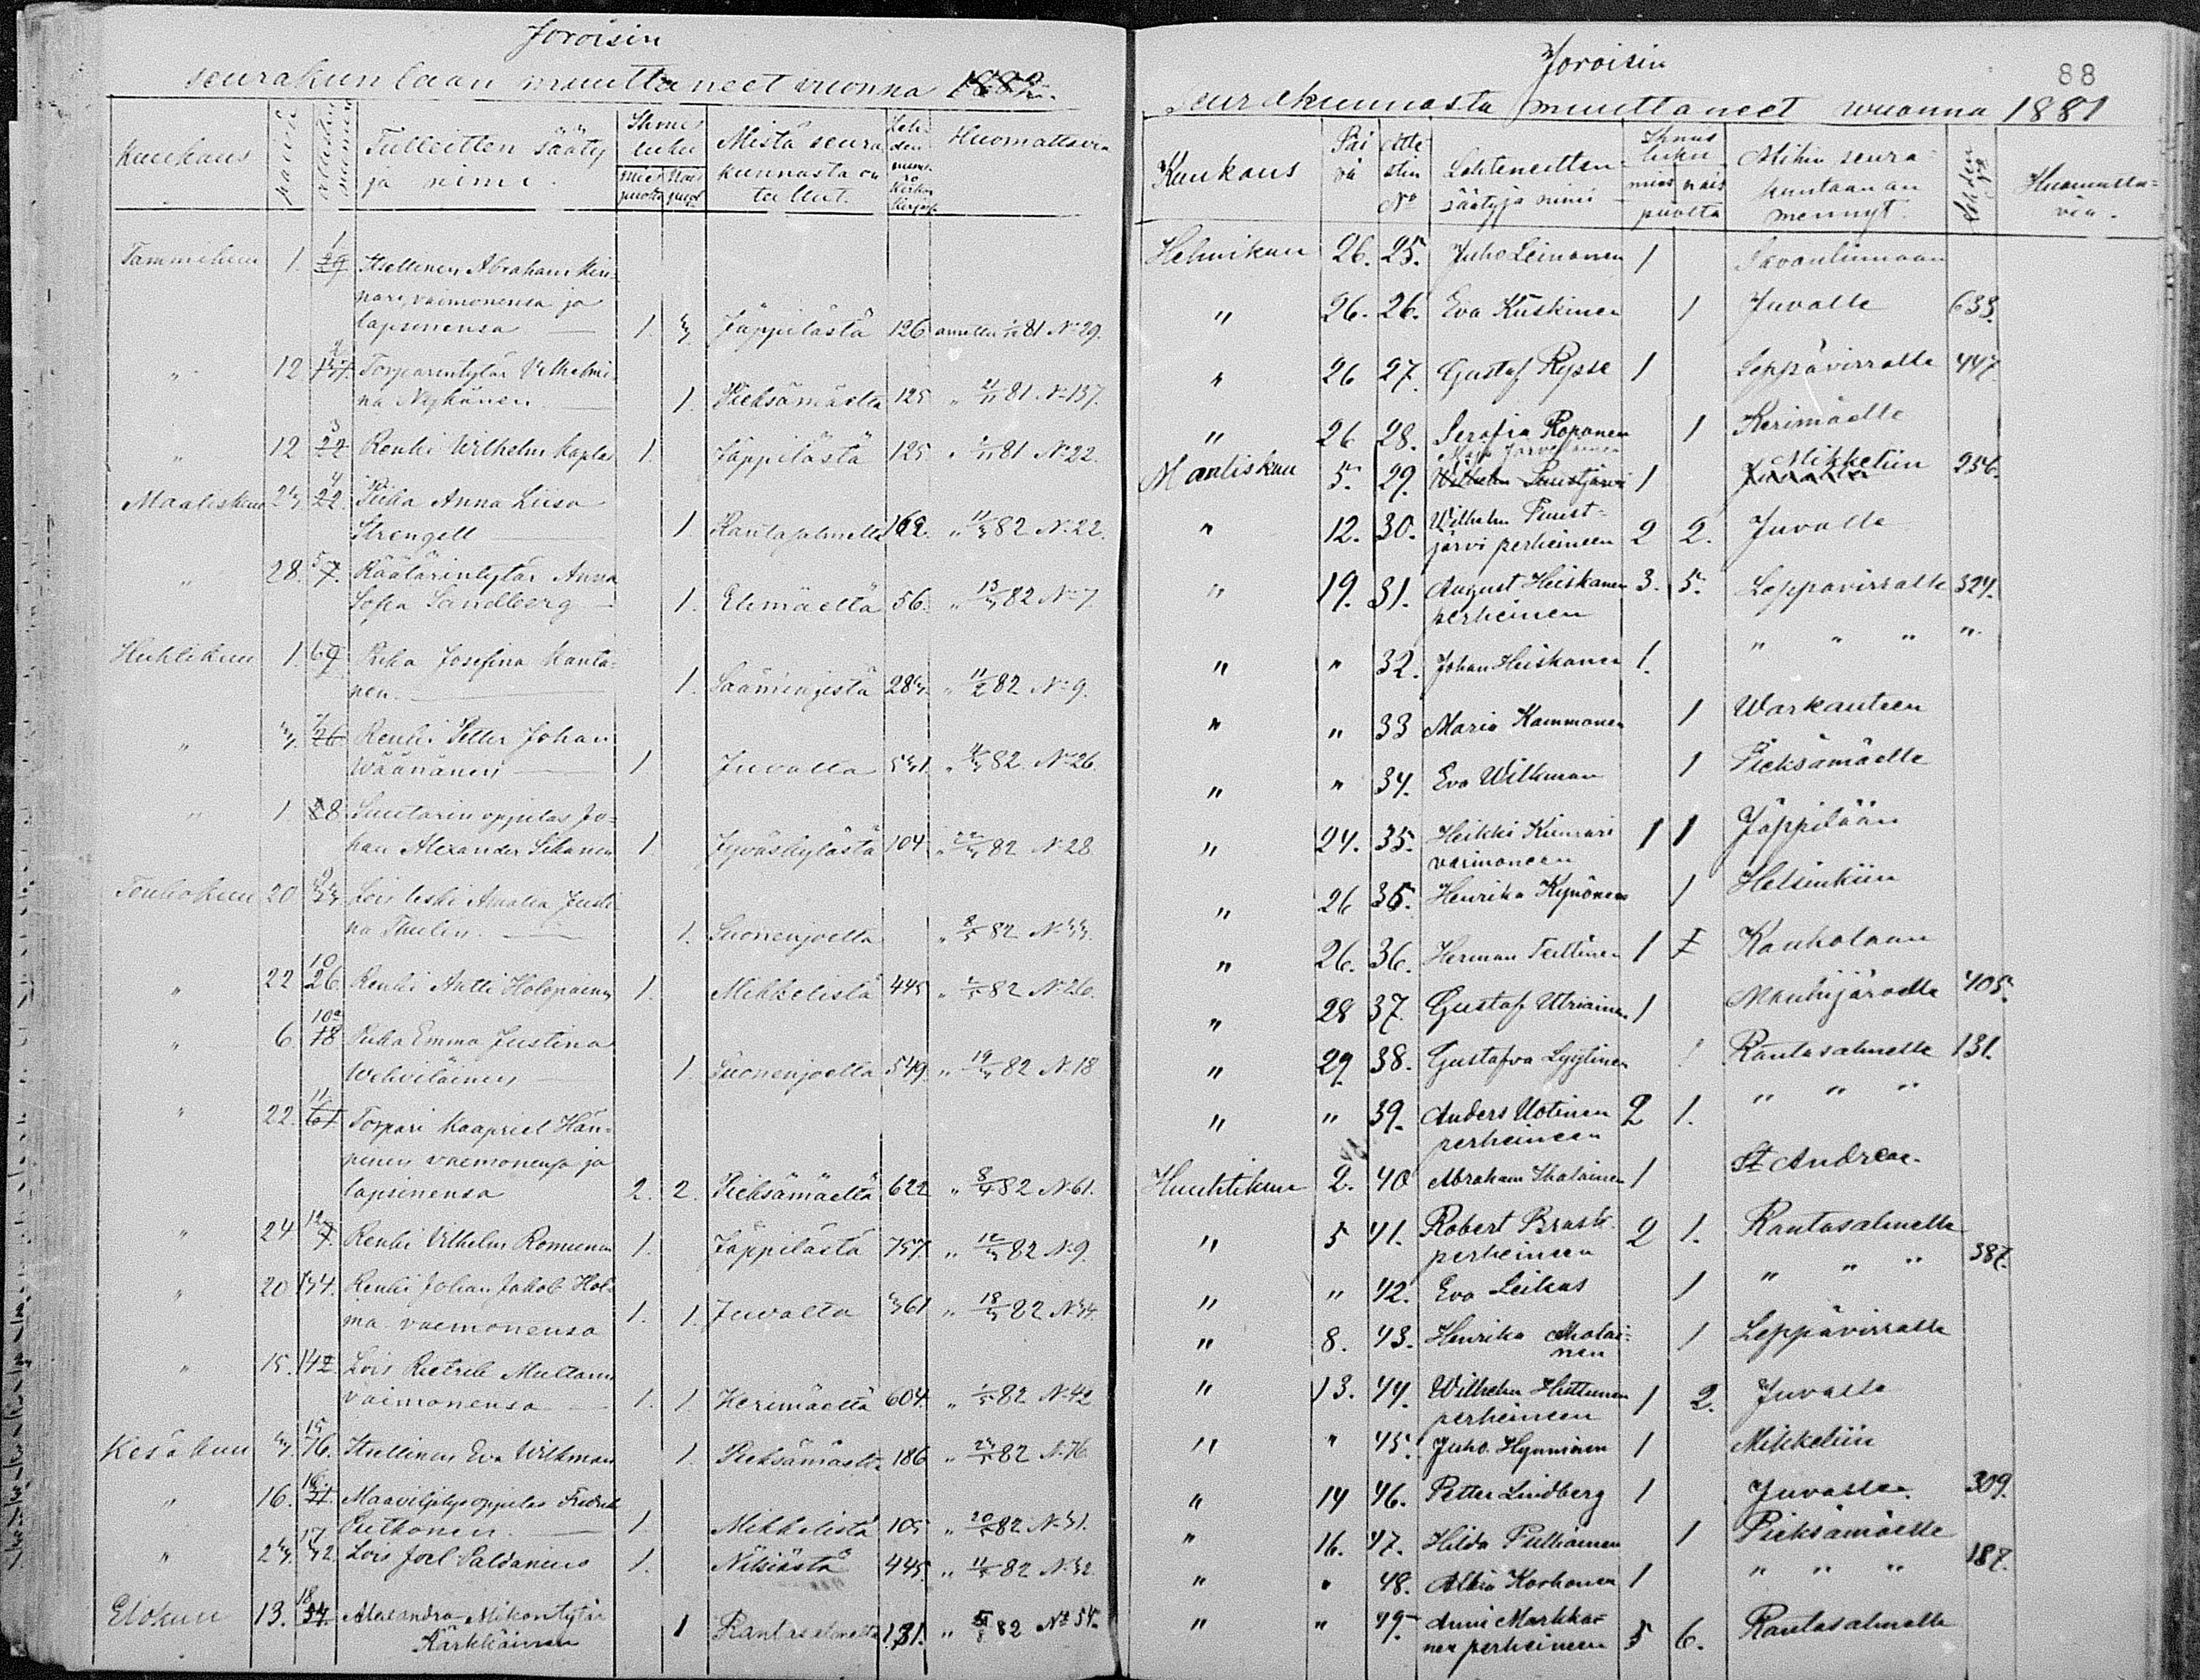 Joroisin
seurakuntaan muuttaneet vuonna 1882.
Kuukaus
Tulleitten sääty ja nimi.
Ihmis luku
mies puolta
nais puol
Mistä seurakunnasta on tullut.
Huomattavia
Tammikuu 1. 1 Itsellinen Abraham
vaimonensa ja
lapsinensa — 1. Jäppilästä 126 annettu 81 No 29.
" 12 Torpparintytär Vilhelmi-
na Nykänen — 1. Pieksämäeltä 125 " 81 No 137.
" 12 3 22 Renki Wilhelm Kaplas 1. Jäppilästä 125 " 81 No 22
Maaliskuu 4 22. Piika Anna Liisa
Strengell — 1. Rantasalmelta 162. " 82 No 22.
" 28. 5 7. Räätärintytär Anna
Sofia Sandberg — 1. Elimäeltä 56. " 82 No 7
Huhtikuu 1. 6 9 Piika Josefina Kanta-
nen. — 1. Sääminjestä " 11/2 82 No 9.
" 7 26 Renki Petter Johan
Wäänänen — 1 Juvalta " 82 No 26
" 1 8 Suutarin oppilas Jo-
han Alexander Sikanen 1. Jyväskylästä 104 " 82 No 28
Toukokuu 20 9 Lois leski Amalia Justi-
na Thulin. — 1. Suonenjoelta " 82
" 22 10 26. Renki Antti Holopainen 1. Mikkelistä 445 " 82 No 26.
" 6 10a 18 Piika Emma Justina
Wehviläinen — 1. Suonenjoelta 549. " 82 No 18
" 22. 11 61 Torpari Kaapriel Hän-
ninen vaimonensa ja
lapsinensa 2. 2. Pieksämäeltä 622 " 8/4 82 No 61.
" 24 12 Renki Vilhelm Romunen 1. Jäppilästä 757. " 82 No 9.
" 20 Renki Johan Jakob Hol-
ma vaimonensa 1. 1. Juvalta 361 " 82
" 15. 14 Lois Pietrik Multanen
vaimonensa — 1. 1 Kerimäeltä 604. " 82 No 42
Kesäkuu 15 76. Itsellinen Eva Wilkman 1. Pieksämäeltä 186 " 82 No 76.
" 16. 16 Maaviljelys oppilas Fredrik
Putkonen. — 1. Mikkelistä 105 " 82
" 17 Lois Joel Saldanius 1. Nilsiästä 445. " 82 No 32
Elokuu 13. 18 54. Alexandra Mikontytär
Kärkkäinen 1 Rantasalmelta 131. " 82 No 54.
Joroisin
88
Seurakunnasta muuttaneet vuonna 1881
Kuukaus
Päivä
Attestin No
Lähteneitten sääty ja nimi
Ihmis luku
mies nais
puolta
Mihin seurakuntaan on mennyt.
Huomattavia.
Helmikuu 26. 25. Juho Leinonen 1 Savonlinnaan
" 26. 26. Eva Kuskinen 1 Juvalle 638.
" 26 27. Gustaf Rysse 1 Leppävirralle 447.
" 26 28. Serafia Roponen 1 Kerimäelle
Maaliskuu 5. 29. 1 Mikkeliin 256.
" 12. 30. Wilhelm Suust-
järvi perheineen 2 2. Juvalle
" 19. 31. August Heiskanen 3. 5. Leppävirralle 324.
perheinen
" " 32. Johan Heiskanen 1. " " " "
" " 33 Maria Kammonen 1 Warkauteen
" " 34. Eva Wilkman 1 Pieksämäelle
" 24. 35. Heikki Kiimari 1 1 Jäppilään
vaimoneen
" 26 35. Henrika Kynönen 1 Helsinkiin
" 26. 36. Herman Teittinen 1 Kauholaan
" 28 37. Gustaf Utriainen 1 Mouhijärvelle 405.
" 29 38. Gustafva Lyytinen 1 Rantasalmelle 131.
" " 39. Anders Uotinen 2 1. " " "
perheineen
Huuhtikuu 2. 40 Abraham Ikalainen 1 St Andreae.
" 5 41. Robert Brask 2 1. Rantasalmelle
perheineen
" " 42. Eva Leikas 1 " " " 387.
" 8. 43. Henrika Aholai-
nen 1 Leppävirralle
" 13. 44. Wilhelm Huttunen 1 2. Juvalle
perheineen
" " 45. Juho Hynninen 1 Mikkeliin
" 14 46. Petter Lindberg 1 Juvalle 309.
" 16. 47. Hilda Pulliainen 1 Pieksämäelle
" " 48. Albin Korhonen 1 " " " 187.
" " 49. Anni Markka-
nen perheineen 5 6. Rantasalmelle